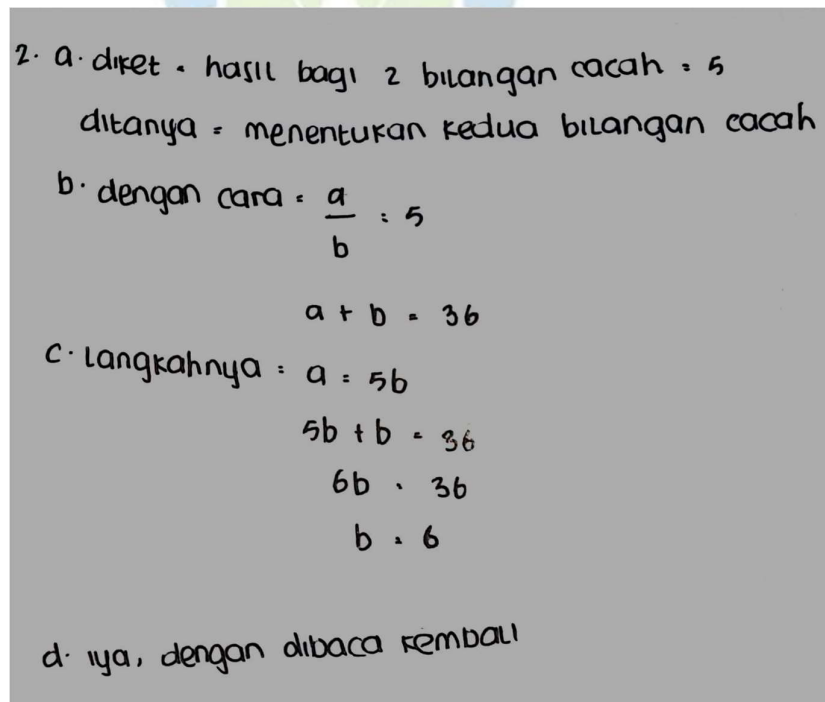 2. a. diket = hasil bagi 2 bilangan cacah = 5
ditanya = menentukan kedua bilangan cacah
b. dengan cara = a/b = 5
a + b = 36
c. Langkahnya = a = 5b
5b + b = 36
6b = 36
b = 6
d. iya, dengan dibaca kembali